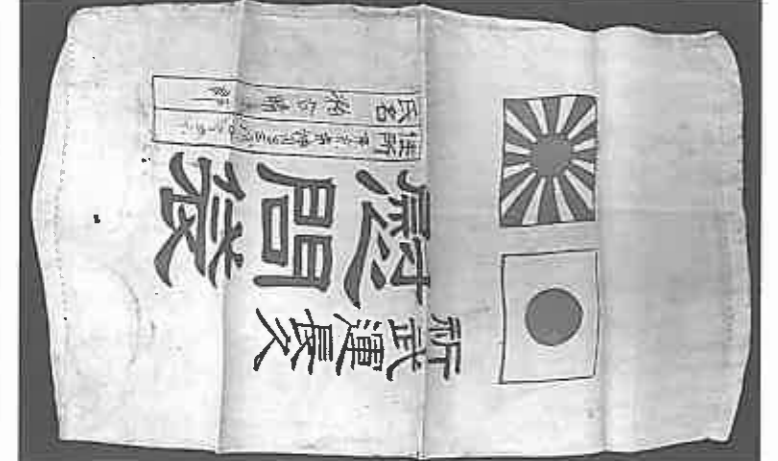 祈武運長久
慰問袋
住所 東京市
氏名